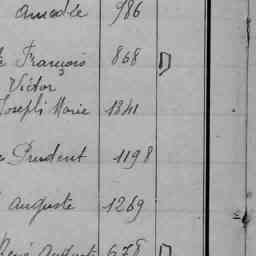 Amedle 986
François 868
Victor
Joseph Marie 1341
Prudent 1198
Auguste 1269
René August 678